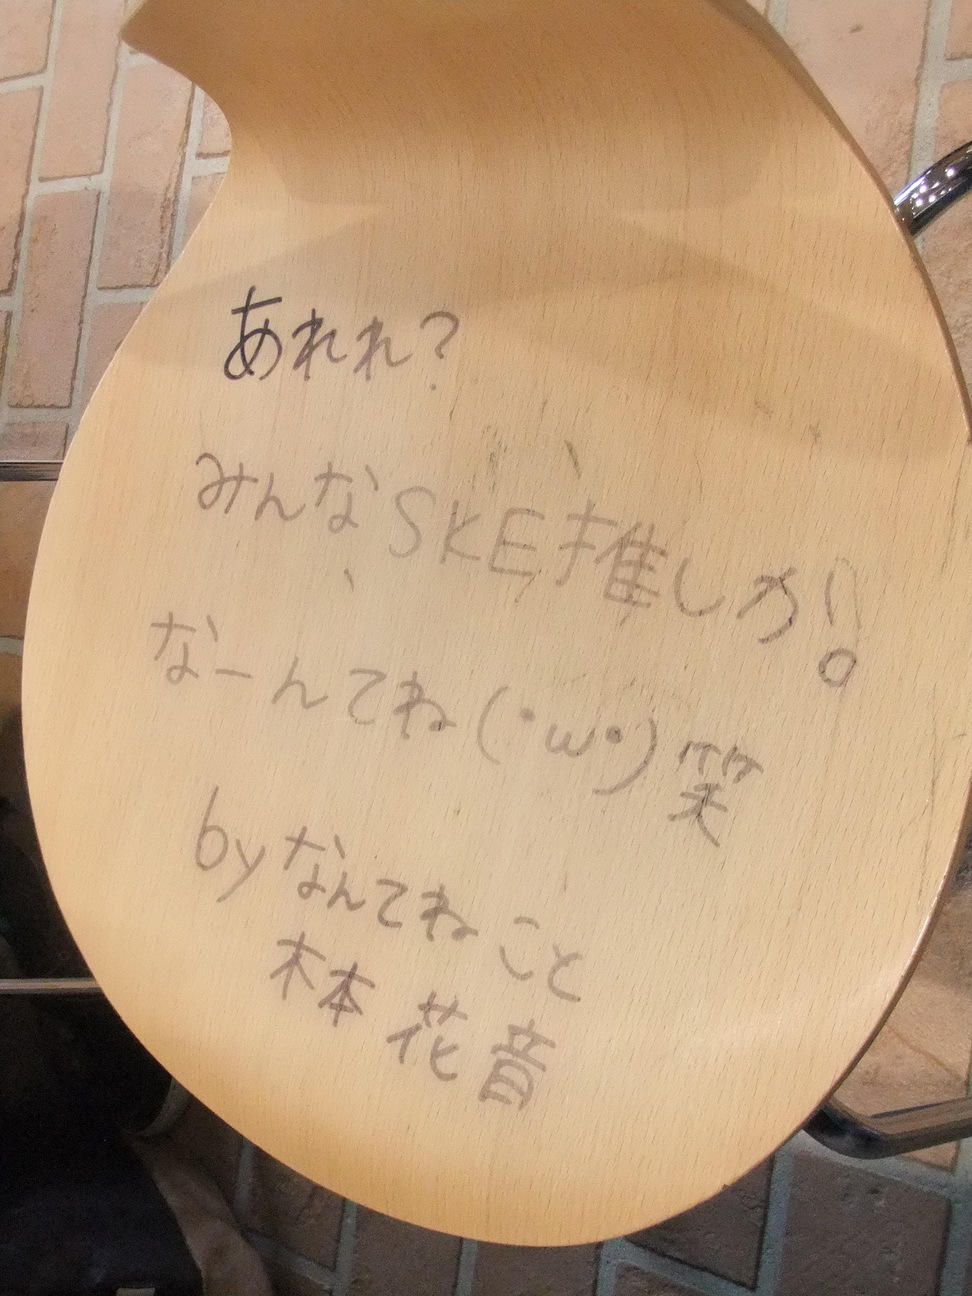 あれれ?
みんなSKE推しか!!
なーんてね(・ω・)笑
byなんてねこと
木本花音